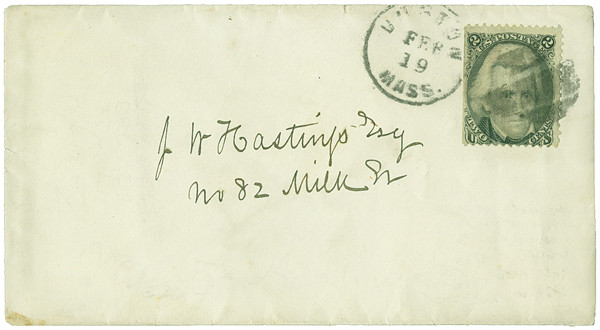 BOSTON
FEB
19
MASS.
2 U.S. POSTAGE 2
J W Hastings Esq
No 82 Milk St